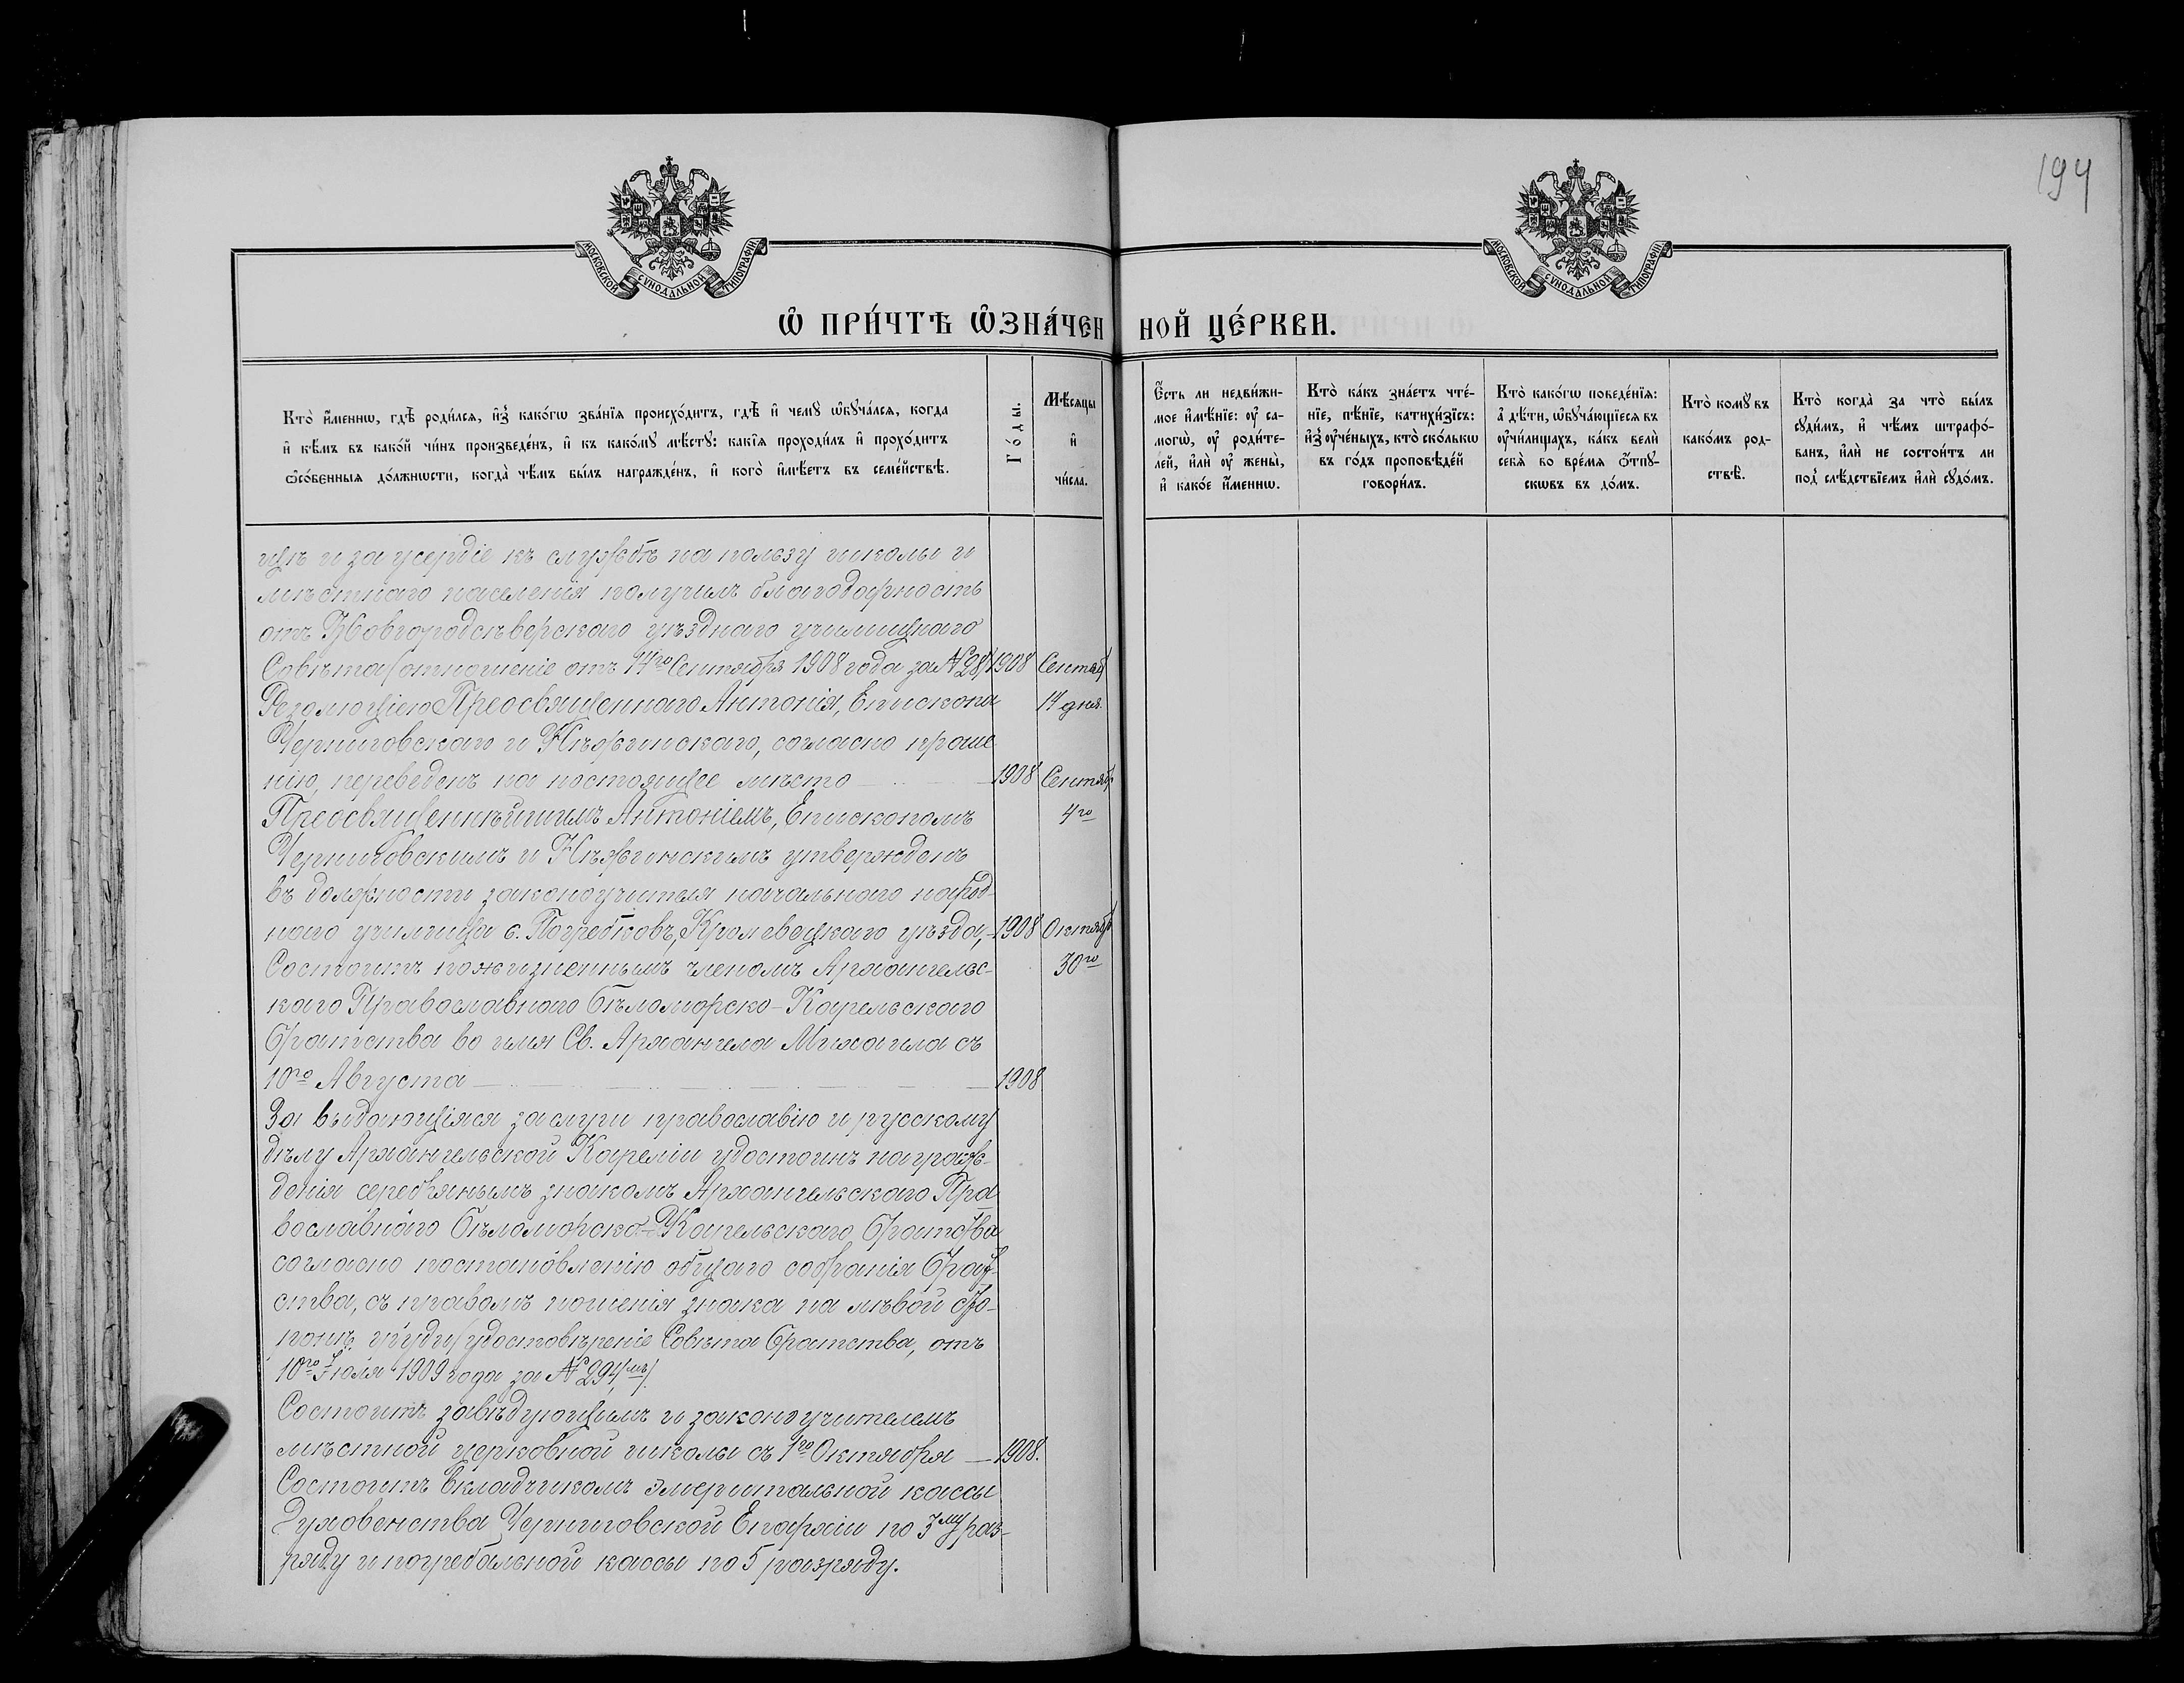 194
МОСКОВСКОЙ СѴНОДАЛЬНОЙ ТИПОГРАФІИ
МОСКОВСКОЙ СѴНОДАЛЬНОЙ ТИПОГРАФІИ
Ѡ ПРИ́ЧТѢ ѠЗНА́ЧЕН НОЙ ЦЕ́РКВИ.
Кто̀ и҆́менню, гдѣ̀ роди́лся, и҆з̾ како́гѡ зва́нїя происхо́дитъ, гдѣ̀ и҆ чемꙋ̀ ѡ҆бꙋча́лся, когда
и҆ кѣ́мъ въ како́й чи́нъ произведе́нъ, и҆ къ како́мꙋ мѣ́стꙋ: какі̑я проходи́лъ и҆ прохо́дитъ
ѻ҆со́бенныя до́лжнѡсти, когда̀ чѣ́мъ бы́лъ награжде́нъ, и҆ кого̀ и҆мѣ́етъ въ семе́йствѣ.
Го́ды.
Мѣ́сяцы
и҆
чи́сла.
Є҆́сть ли недви́жи-
мое и҆мѣ́нїе: ᲂу҆ са-
могѡ̀, ᲂу҆ роди́те-
лей, и҆лѝ ᲂу҆ жены̀,
и҆ како́е и҆́меннѡ.
Кто̀ ка́къ зна́етъ чте́-
нїе, пѣ́нїе, катихи́зїсъ:
и҆з̾ ᲂу҆че́ныхъ, кто̀ ско́лькѡ
въ го́дъ проповѣ́дей
говори́лъ.
Кто̀ како́гѡ поведе́нїя:
а҆ дѣ́ти, ѡ҆бꙋча́ющїеся въ
ᲂу҆чи́лищахъ, ка́къ велѝ
себѧ̀ во вре́мѧ ѿпꙋ-
сковъ въ до́мъ.
Кто̀ комꙋ̀ въ
како́мъ род-
ствѣ̀.
Кто̀ когда̀ за что̀ бы́лъ
сꙋди́мъ, и҆ чѣ́мъ штрафо́-
ванъ, и҆лѝ не состои́тъ ли
под̾ слѣ́дствїемъ и҆лѝ сꙋдо́мъ.
щѣ и за усердіе къ службѣ на пользу школы и
мѣстнаго населенія получилъ благодарность
отъ Новгородсѣверскаго уѣзднаго училищнаго
Совѣта (отношеніе отъ 14го Сентября 1908 года за № 98) 1908 Сентяб
Резолюціею Преосвященнаго Антонія, Епископа 14 дня.
Черниговскаго и Нѣжинскаго, согласно проше
нію, переведенъ на настоящее мѣсто 1908 Сентяб
Преосвященнѣйшимъ Антоніемъ, Епископомъ 4го
Черниговскимъ и Нѣжинскимъ утвержденъ
въ должности законоучителя начальнаго народ-
наго училища с. Погребковъ, Кролевецкаго уѣзда,- 1908 Октяб
Состоитъ пожизненнымъ членомъ Архангельс- 30го
каго Православнаго Бѣломорско-Карельскаго
Братства во имя Св. Архангела Михаила съ
10го Августа 1908
За выдающіяся заслуги православію и русскому
дѣлу Архангельской Кареліи удостоинъ награж-
денія серебрянымъ знакомъ Архангельскаго Пра
вославнаго Бѣломорско-Карельскаго Братства
согласно постановленію общаго собранія Брат-
ства, съ правомъ ношенія знака на лѣвой сто-
ронѣ груди (удостовѣреніе Совѣта Братства, отъ
10го Іюля 1909 года за № 294мъ).
Состоитъ завѣдующимъ и законоучителемъ
мѣстной церковной школы съ 1го Октября — 1908.
Состоитъ вкладчикомъ эмеритальной кассы
Духовенства Черниговской Епархіи по 3му раз-
ряду и погребальной кассы по 5 разряду.